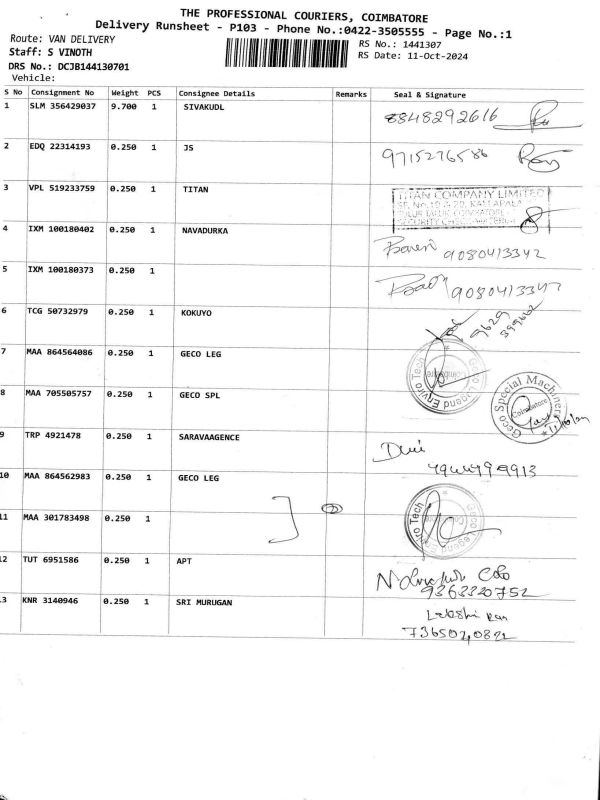 THE PROFESSIONAL COURIERS, COIMBATORE
Delivery Runsheet - P103 - Phone No.:0422-3505555 - Page No.:1
Route: VAN DELIVERY
Staff: S VINOTH
DRS No.: DCJB144130701
Vehicle:
RS No.: 1441307
RS Date: 11-Oct-2024
S No Consignment No Weight PCS Consignee Details Remarks Seal & Signature
1 SLM 356429037 9.700 1 SIVAKUDL 8848292616
2 EDQ 22314193 0.250 1 JS 9715276586
3 VPL 519233759 0.250 1 TITAN
TITAN COMPANY LIMITED
4 IXM 100180402 0.250 1 NAVADURKA 9080413342
5 IXM 100180373 0.250 1 9080413342
6 TCG 50732979 0.250 1 KOKUYO 9629
399662
7 MAA 864564086 0.250 1 GECO LEG
Geco Legend Enviro Tech
Coimbatore
8 MAA 705505757 0.250 1 GECO SPL
Geco Special Machinery
Coimbatore
9 TRP 4921478 0.250 1 SARAVAAGENCE
10 MAA 864562983 0.250 1 GECO LEG
Geco Legend Enviro Tech
11 MAA 301783498 0.250 1
12 TUT 6951586 0.250 1 APT
9363320752
13 KNR 3140946 0.250 1 SRI MURUGAN